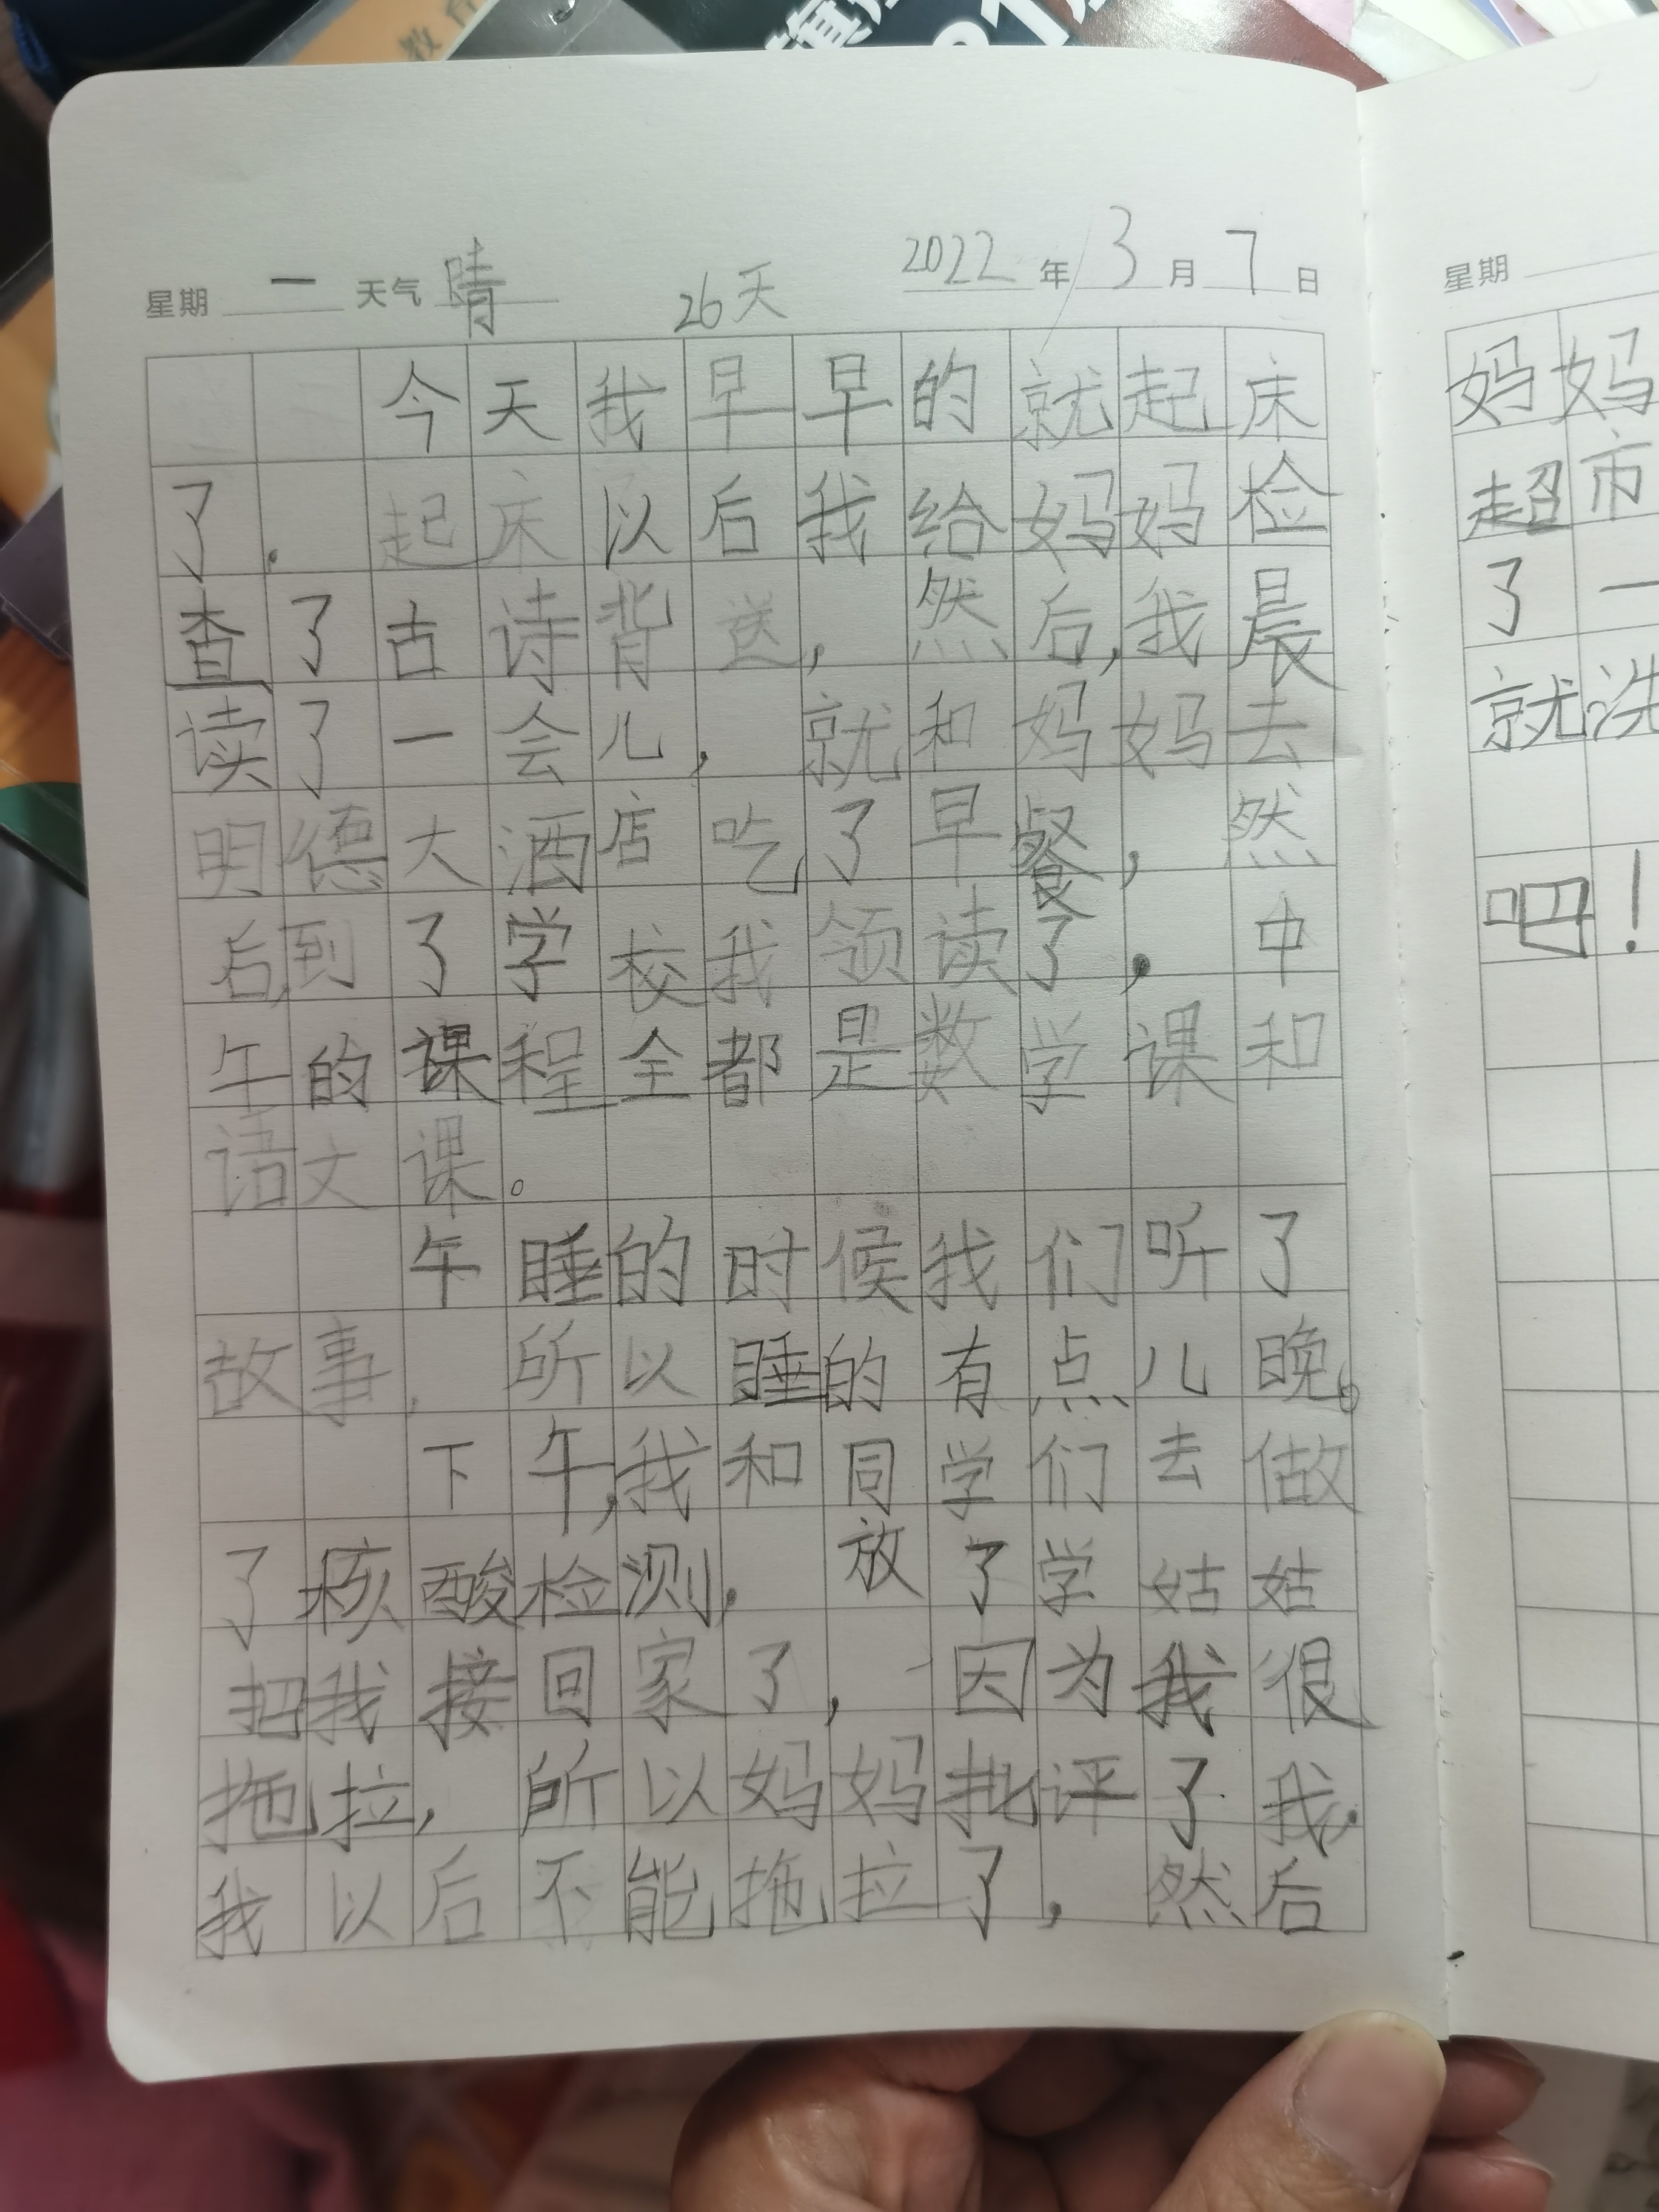 教育
星期 一 天气 晴 26天 2022 年 3 月 7 日
今天我早早的就起床
了. 起床以后我给妈妈检
查了古诗背送, 然后,我晨
读了一会儿, 就和妈妈去
明德大酒店吃了早餐, 然
后,到了学校我领读了, 中
午的课程全都是数学课和
语文课。
午睡的时候我们听了
故事, 所以睡的有点儿晚。
下午,我和同学们去做
了核酸检测, 放了学姑姑
把我接回家了, 因为我很
拖拉, 所以妈妈批评了我,
我以后不能拖拉了, 然后
星期
妈妈
超市
了一
就洗
吧!